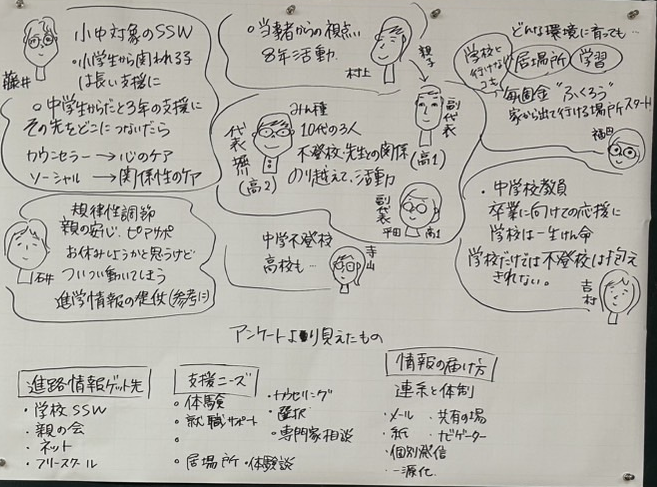 小中対象のSSW
・小学生から関われる子
は長い支援に
○中学生からだと3年の支援に
その先をどこにつないだら
カウンセラー→心のケア
ソーシャル→関係性のケア
藤井
○当事者からの視点
8年活動
村上
親子
どんな環境に育っても…
学校へ
行けなく
居場所
学習
毎週金“ふくろう”
家から出て行ける場所スタート
福田
みん種
10代の3人
不登校、先生との関係
のり越えて、活動力
代表
(高2)
副代表
(高1)
副代表
平田
高1
規律性調節
親の安心、ピアサポ
お休みしようかと思うけど
ついつい動いてしまう
進学情報の提供(参考に)
石井
中学不登校
高校も…
寺山
・中学校教員
卒業に向けての応援に
学校は一生けん命
学校だけでは不登校は抱え
きれない。
吉村
アンケートより見えたもの
進路情報ゲット先
・学校SSW
・親の会
・ネット
・フリースクール
支援ニーズ
・体験
・就職サポート
・
・居場所・体験談
・カウセリング
・選択
・専門家相談
情報の届け方
連系と体制
・メール
・共有の場
・紙
・ナビゲーター
・個別発信
・一源化